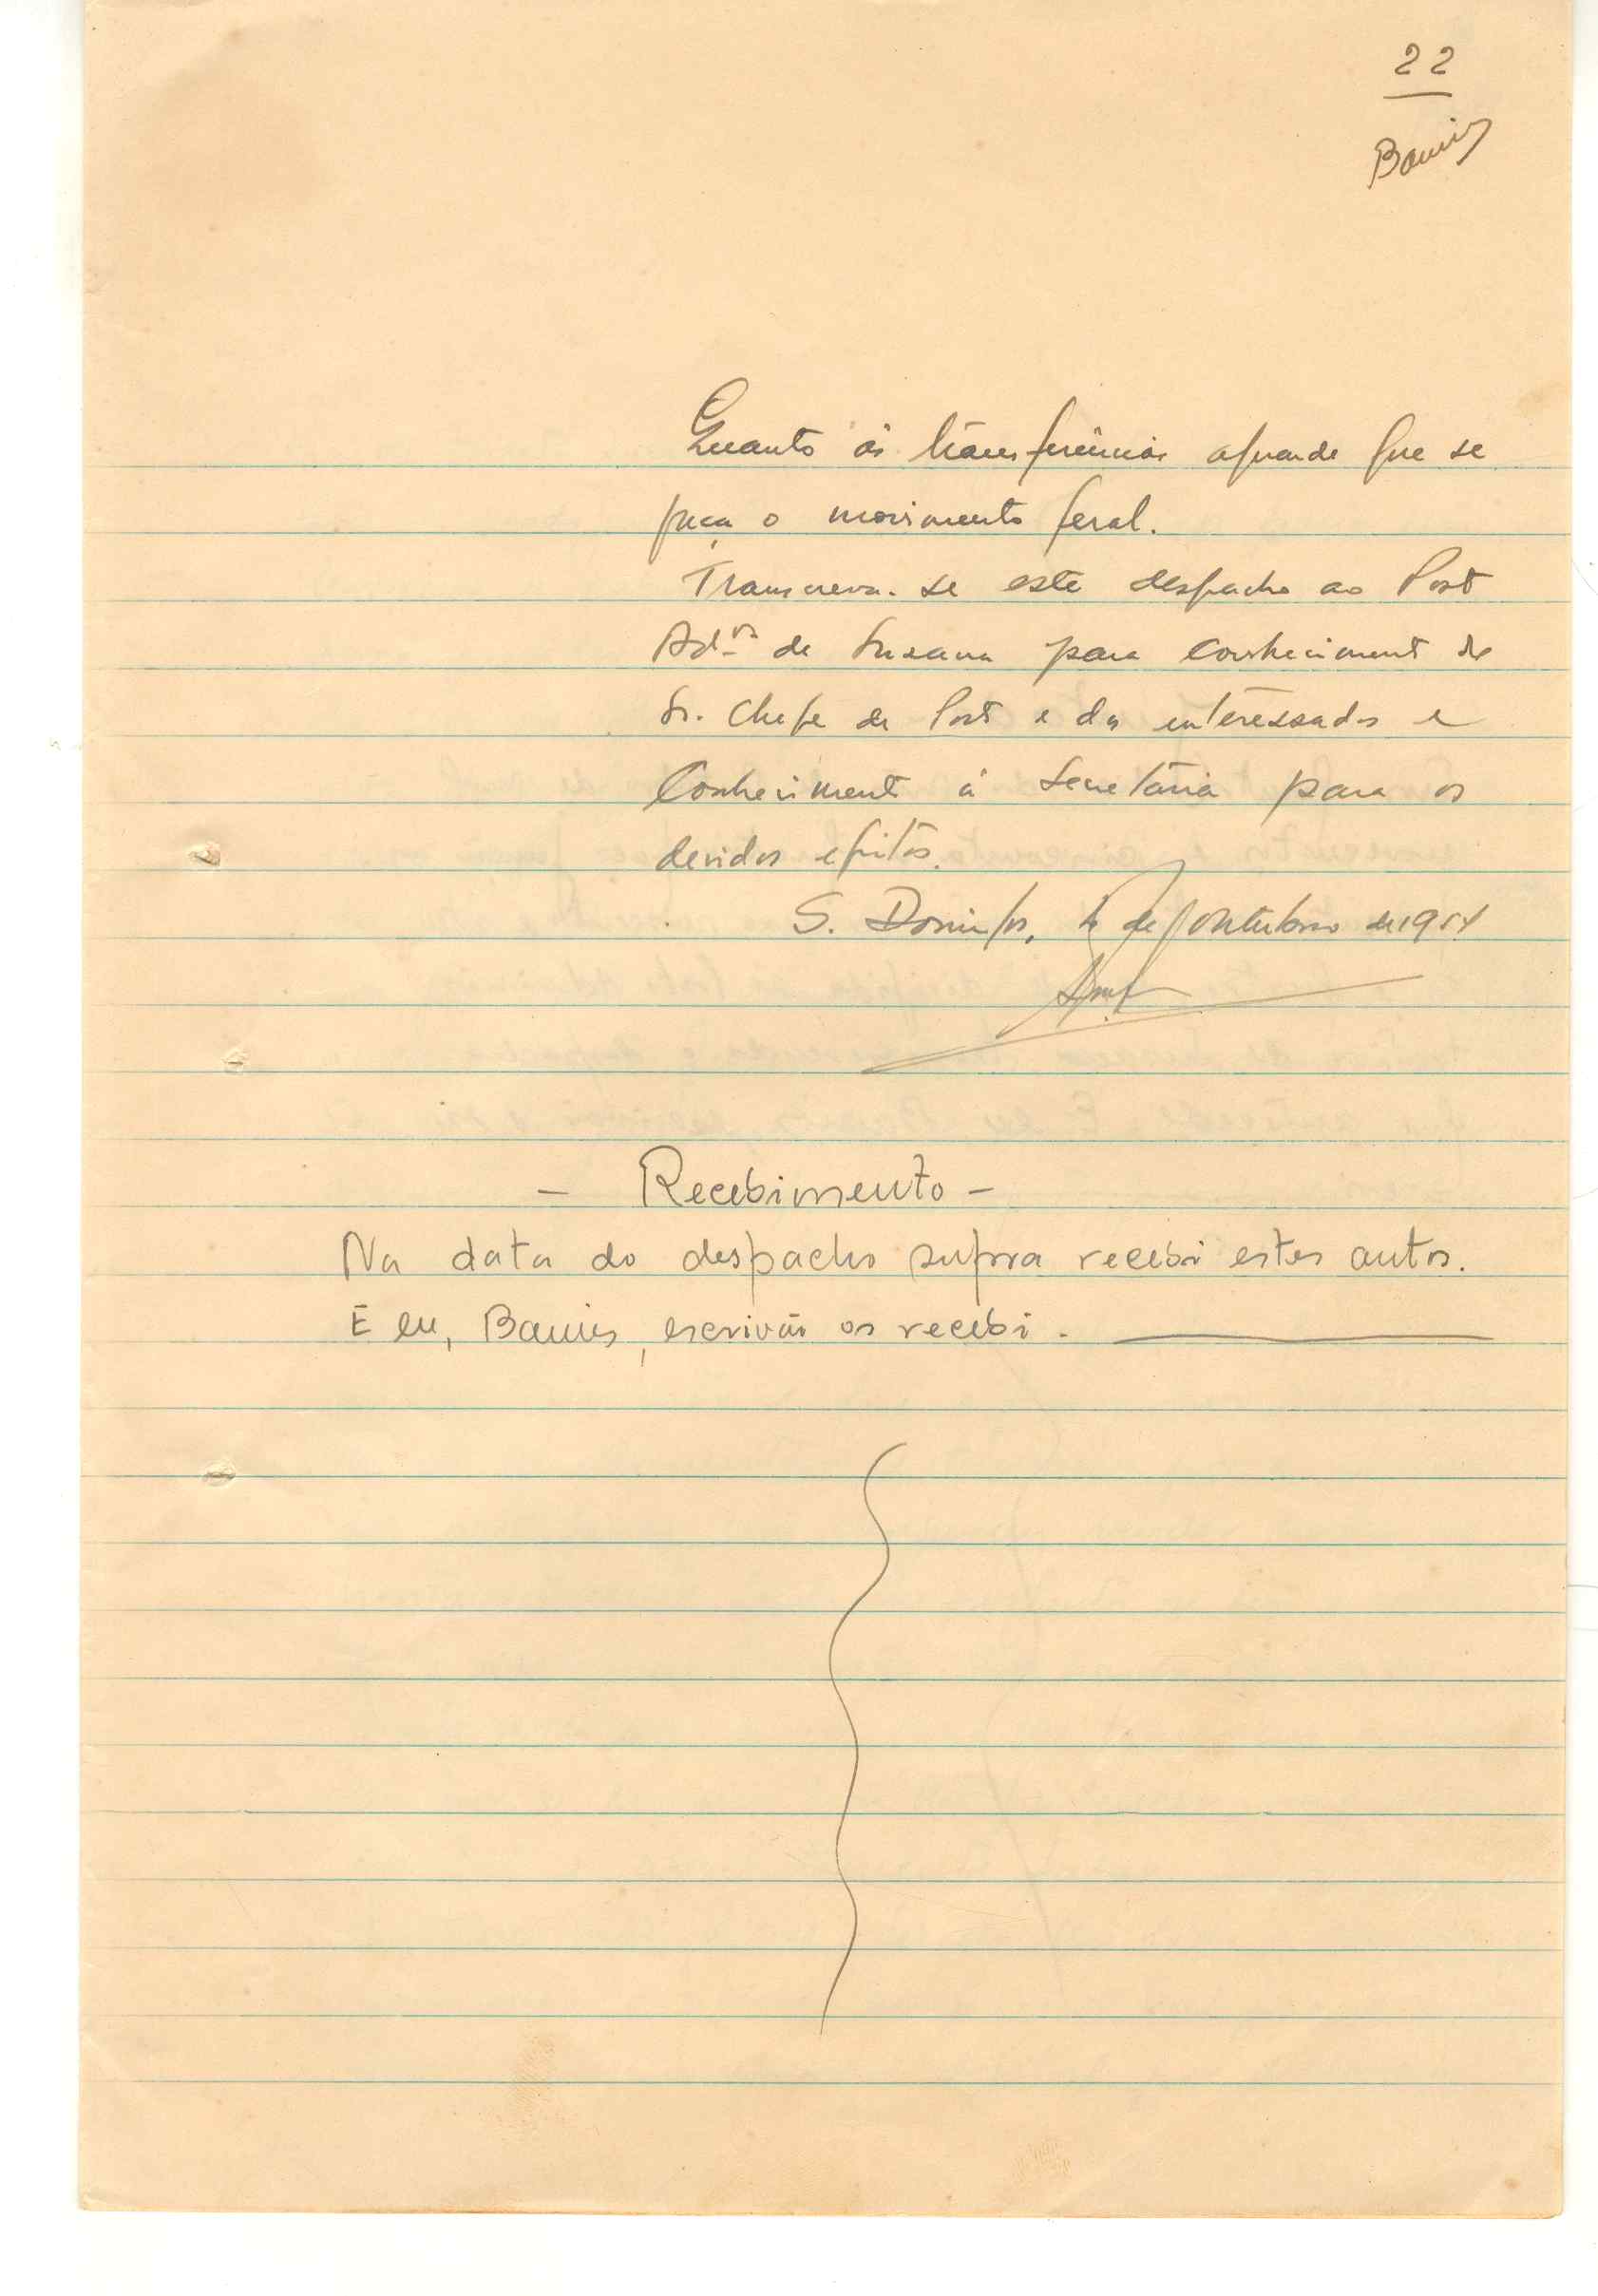 22
Quanto às transferências aguarde que se
faça o movimento geral.
Transcreva-se este despacho ao Posto
Adm.vo de Susana para conhecimento do
Sr. Chefe de Posto e dos interessados e
conhecimento à Secretária para os
devidos efeitos.
S. Domingos, de Outubro de 195
- Recebimento -
Na data do despacho supra recebi estes autos.
E eu, escrivão os recebi.